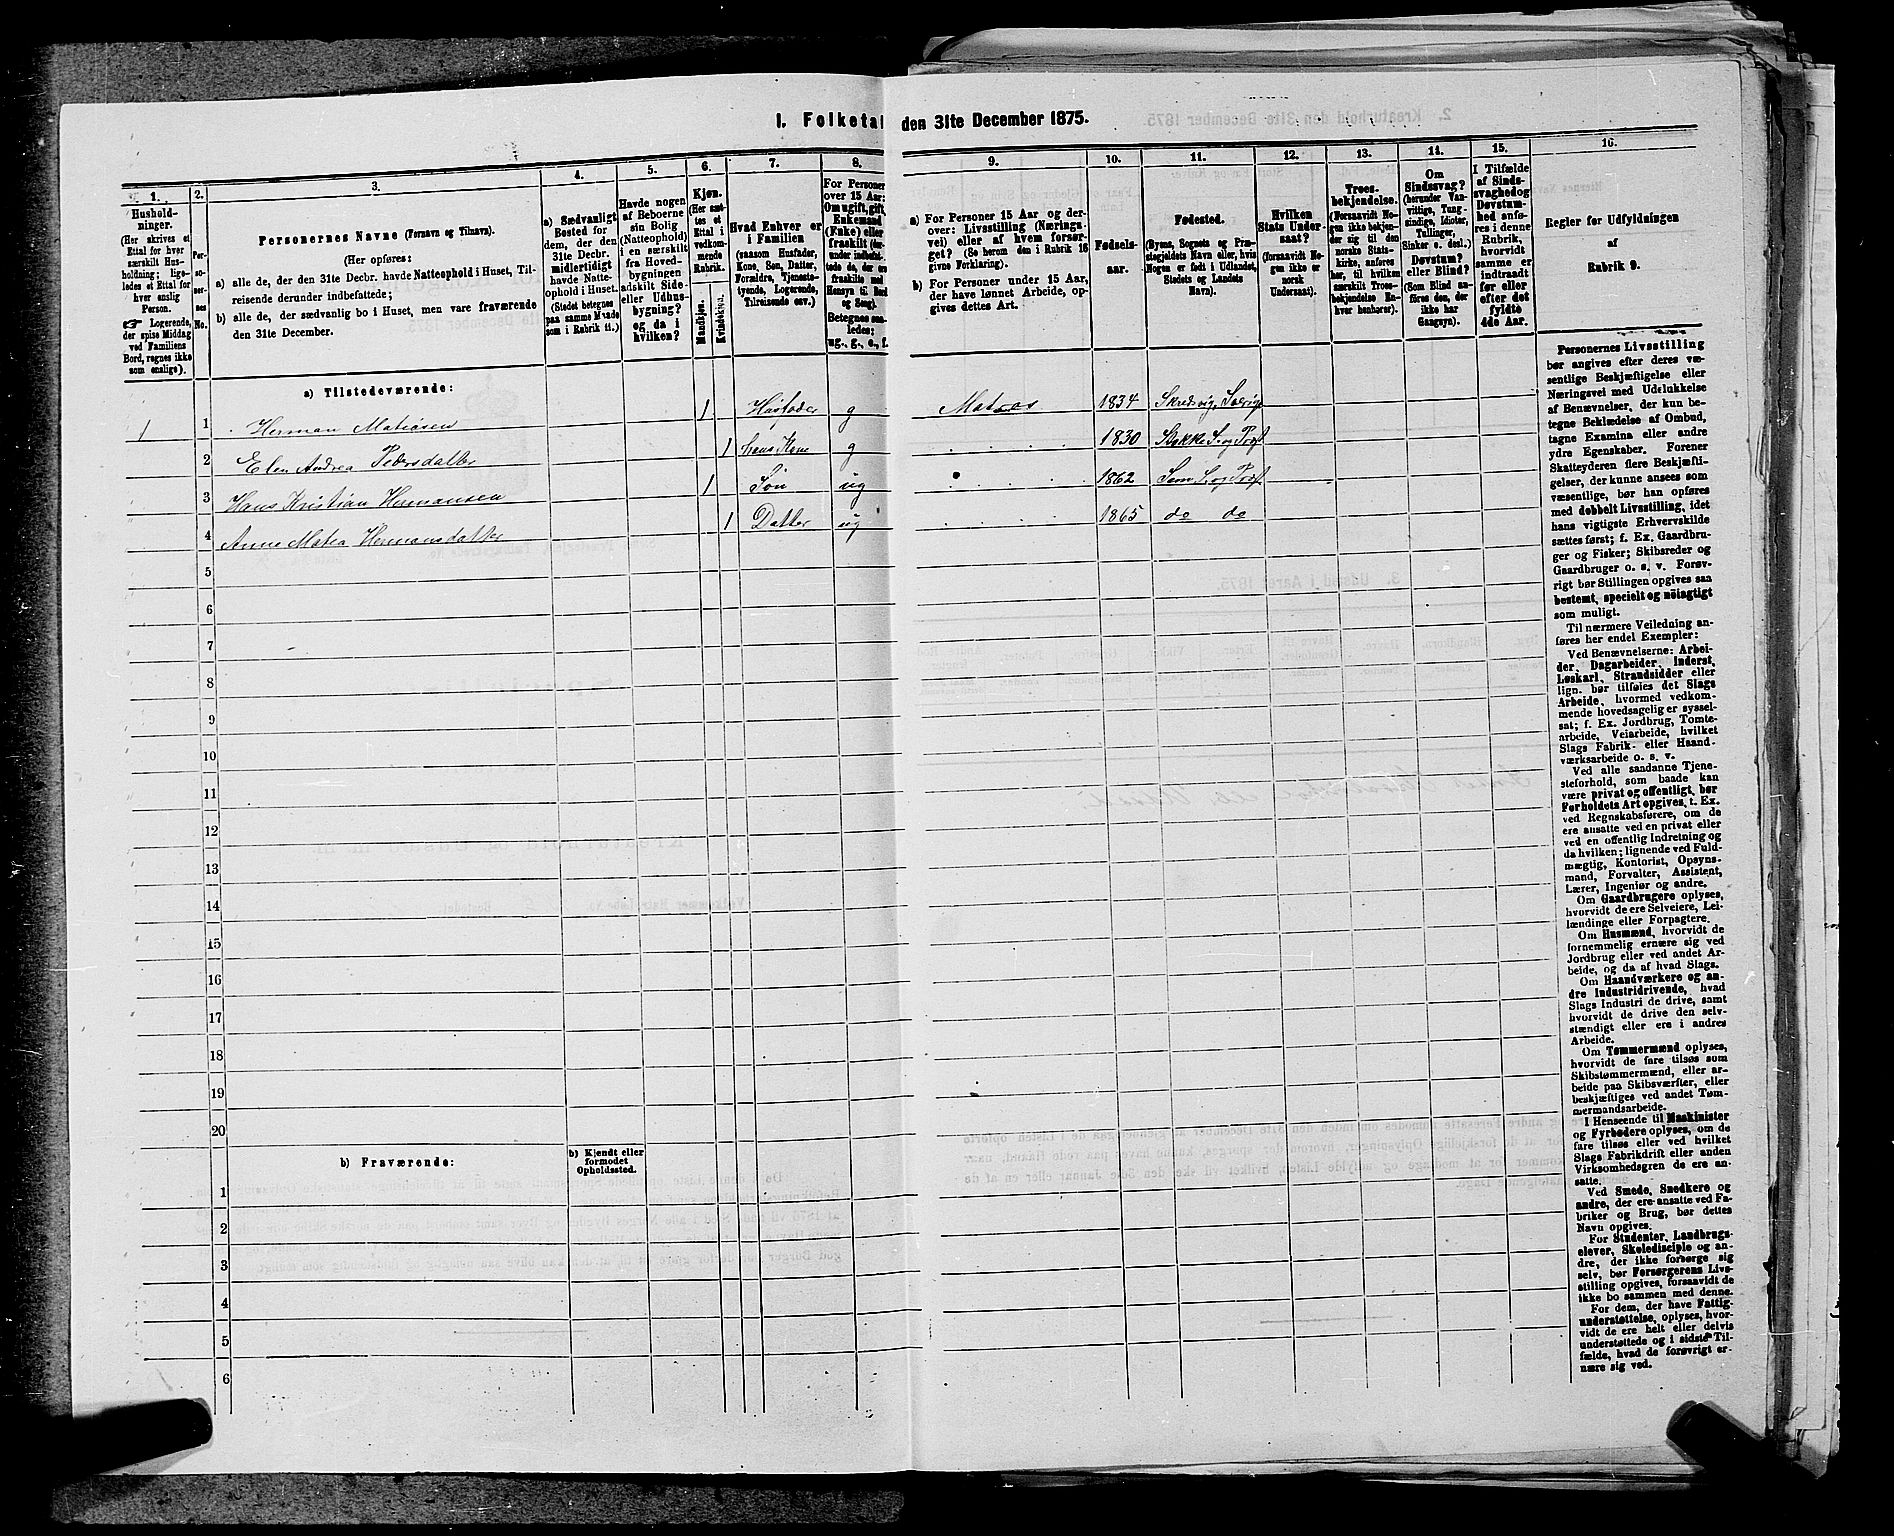 1. Folketal den 31te December 1875.
1.
2.
3.
4.
5.
6.
7.
8.
9.
10.
11.
12.
13.
14.
15.
16.
Hushold-
ninger.
(Her skrives et
Ettal for hver
særskilt Hus-
holdning; lige-
ledes et Ettal for
hver enslig
Person.
☞ Logerende,
der spise Middag
ved Familiens
Bord, regnes ikke
som enslige).
Per-
so-
ner-
nes
No.
Personernes Navne (Fornavn og Tilnavn).
(Her opføres:
a) alle de, der den 31te Decbr. havde Natteophold i Huset, Til-
reisende derunder indbefattede;
b) alle de, der sædvanlig bo i Huset, men vare fraværende
den 31te December.
a) Sædvanligt
Bosted for
dem, der den
31te Decbr.
midlertidigt
havde Natte-
ophold i Huset.
(Stedet betegnes
paa samme Maade
som i Rubrik 11.)
Havde nogen
af Beboerne
sin Bolig
(Natteophold)
i en særskilt
fra Hoved-
bygningen
adskilt Side-
eller Udhus-
bygning?
og da i
hvilken?
Kjøn.
(Her sæt-
tes et
Ettal i
vedkom-
mende
Rubrik.
Mandkjøn.
Kvindekjøn.
Hvad Enhver er
i Familien
(saasom Husfader,
Kone, Søn, Datter,
Forældre, Tjeneste-
tyende, Logerende,
Tilreisende osv.)
For Personer
over 15 Aar:
Om ugift, gift,
Enkemand
(Enke) eller
fraskilt (der-
under indbefat-
tede de, der ere
fraskilte med
Hensyn til Bord
og Seng).
Betegnes saa-
ledes:
ug., g., e., f.
a) For Personer 15 Aar og der-
over: Livsstilling (Nærings-
vei) eller af hvem forsør-
get? (Se herom den i Rubrik 16
givne Forklaring).
b) For Personer under 15 Aar,
der have lønnet Arbeide, op-
gives dettes Art.
Fødsels-
aar.
Fødested.
(Byens, Sognets og Præ-
stegjeldets Navn eller, hvis
Nogen er født i Udlandet,
Stedets og Landets
Navn).
Hvilken
Stats Under-
saat?
(forsaavidt No-
gen ikke er
norsk
Undersaat).
Troes-
bekjendelse.
(Forsaavidt No-
gen ikke bekjen-
der sig til den
norske Stats-
kirke, anføres
her, til hvilken
særskilt Troes-
bekjendelse En-
hver henhører).
Om
Sindssvag?
(herunder Van-
vittige, Tung-
sindige, Idioter,
Tullinger,
Sinker o. desl.)
Døvstum?
eller Blind?
(Som Blind an-
føres den, der
ikke har
Gangsyn).
I Tilfælde
af Sinds-
svaghed og
Døvstum-
hed anfø-
res i denne
Rubrik,
hvorvidt
samme er
indtraadt
før eller
efter det
fyldte
4de Aar.
Regler for Udfyldningen
af
Rubrik 9.
a) Tilstedeværende:
1 1 Herman Matiasen 1 Husfader g Matros 1834 Skredsvig, Sverige
2 Elen Andrea Pedersdatter 1 hans Kone g 1830 Stokke S. og Præst
3 Hans Kristian Hermansen 1 Søn ug 1862 Sem S. og Præst
4 Anne Matea Hermansdatter 1 Datter ug 1865 do do
5
6
7
8
9
10
11
12
13
14
15
16
17
18
19
20
b) Fraværende:
b) Kjendt eller
formodet
Opholdssted.
1
2
3
4
5
6
Personernes Livsstilling
bør angives efter deres væ-
sentlige Beskjæftigelse eller
Næringsvei med Udelukkelse
af Benævnelser, der kun be-
tegne Beklædelse af Ombud,
tagne Examina eller andre
ydre Egenskaber. Forener
Skatteyderen flere Beskjæfti-
gelser, der kunne ansees som
væsentlige, bør han opføres
med dobbelt Livsstilling, idet
hans vigtigste Erhvervskilde
sættes først; f. Ex. Gaardbru-
ger og Fisker; Skibsreder og
Gaardbruger o. s. v. Forøv-
rigt bør Stillingen opgives saa
bestemt, specielt og nöiagtigt
som muligt.
Til nærmere Veiledning an-
føres her endel Exempler:
Ved Benævnelserne: Arbei-
der, Dagarbeider, Inderst,
Løskarl, Strandsidder eller
lign. bør tilføies det Slags
Arbeide, hvormed vedkom-
mende hovedsagelig er syssel-
sat; f. Ex. Jordbrug, Tomte-
arbeide, Veiarbeide, hvilket
Slags Fabrik- eller Haand-
værksarbeide o. s. v.
Ved alle saadanne Tjene-
steforhold, som baade kan
være privat og offentligt, bør
Forholdets Art opgives, t. Ex.
ved Regnskabsførere, om de
ere ansatte ved en privat eller
ved en offentlig Indretning og
da hvilken; lignende ved Fuld-
mægtig, Kontorist, Opsyns-
mand, Forvalter, Assistent,
Lærer, Ingeniør og andre.
Om Gaardbrugere oplyses,
hvorvidt de ere Selveiere, Lei-
lændinge eller Forpagtere.
Om Husmænd, hvorvidt de
fornemmelig ernære sig ved
Jordbrug eller ved andet Ar-
beide, og da af hvad Slags.
Om Haandværkere og an-
dre Industridrivende, hvad
Slags Industri de drive, samt
hvorvidt de drive den selv-
stændigt eller ere i andres
Arbeide.
Om Tømmermænd oplyses,
hvorvidt de fare tilsøs som
Skibstømmermænd, eller ar-
beide paa Skibsværfter, eller
beskjæftiges ved andet Tøm-
mermandsarbeide.
I Henseende til Maskinister
og Fyrbødere oplyses, om de
fare tilsøs eller ved hvilket
Slags Fabrikdrift eller anden
Virksomhedsgren de ere an-
satte.
Ved Smede, Snedkere og
andre, der ere ansatte ved Fa-
briker og Brug, bør dettes
Navn opgives.
For Studenter, Landbrugs-
elever, Skoledisciple og an-
dre, der ikke forsørge sig
selv, bør Forsørgerens Livs-
stilling opgives, forsaavidt de
ikke bo sammen med denne.
For dem, der have Fattig-
understøttelse, oplyses, hvor-
vidt de ere helt eller delvis
understøttede og i sidste Til-
fælde, hvad de forøvrigt er-
nære sig ved.